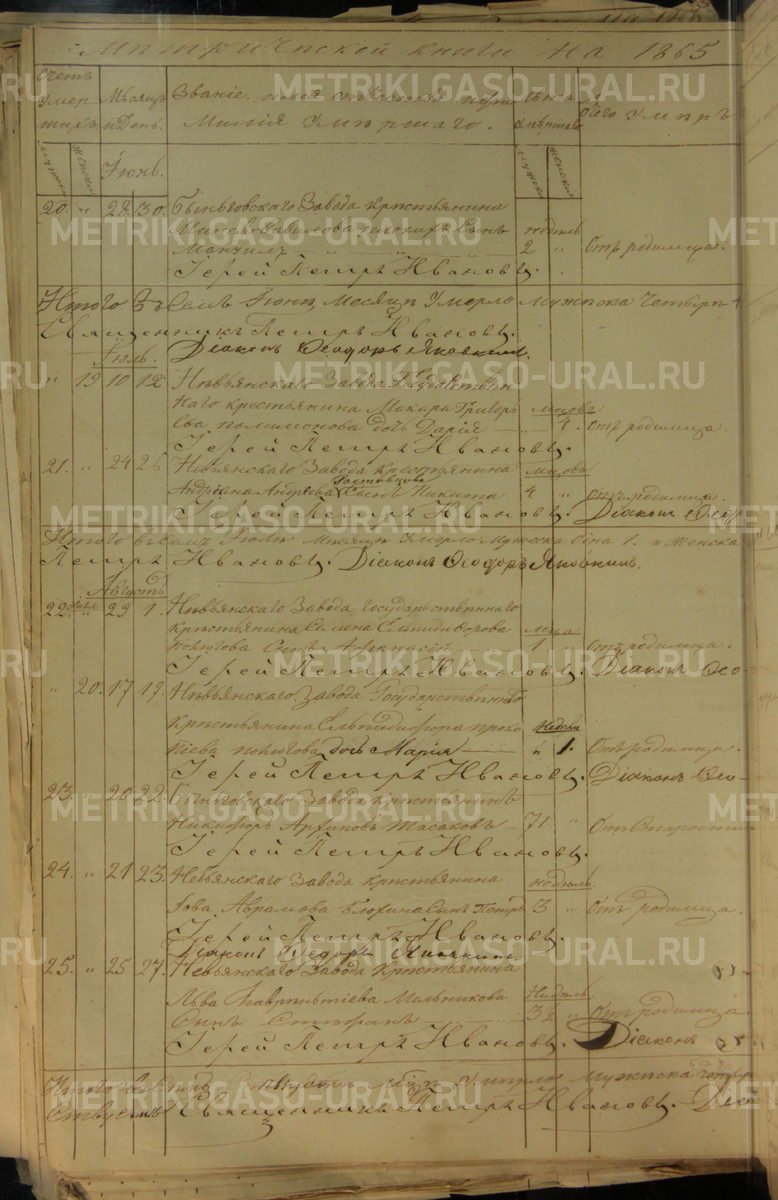 Метрической книги на 1865
Счетъ умершихъ. Мѣсяцъ и День. Званіе. имя отчество и фамилія умершаго. Лѣта умершаго отчего умеръ
Мужска Женска Мужска Женска
Іюнь.
20. " 28 30. Быньговскаго Завода крестьянина
сынъ недѣль
2 " Отъ родимца.
Іерей Петръ Ивановъ.
Итого Въ Семъ Іюнѣ Месяцѣ Умерло Мужеска Четыре 4
Священникъ Петръ Ивановъ.
Іюль. Діаконъ Ѳеодоръ Яковкинъ.
" 19 10 12 Невьянскаго Завода Государствен
наго крестьянина Макара Григорь мѣсяцъ
ева дочь Дарія 4. Отъ родимца.
Іерей Петръ Ивановъ.
21. " 24 26 Невьянскаго Завода крестьянина мѣсяцъ
Андріана Андреева сынъ Никита 4 " Отъ родимца.
Іерей Петръ Ивановъ. Діаконъ Ѳеод
Итого въ семъ Іюлѣ Месяцѣ Умерло Мужеска Пола 1. и Женска
Петръ Ивановъ. Діаконъ Ѳеодоръ Яковкинъ.
Августъ
22. Іюля 29 1. Невьянскаго Завода государственнаго
крестьянина Семена Елпидифорова
сынъ Афанасій 1 " Отъ родимца.
Іерей Петръ Ивановъ. Діаконъ Ѳео-
" 20. 17 19. Невьянскаго Завода Государственнаго
крестьянина Елпидифора Проко недѣли
піева дочь Марія " 1. Отъ родимца.
Іерей Петръ Ивановъ. Діаконъ Ѳео-
23. " 20 22. Быньговскаго Завода крестьянинъ
Никифоръ Архиповъ Тасаковъ 71 " Отъ Старости
Іерей Петръ Ивановъ.
24. " 21 23. Невьянскаго Завода крестьянина недѣль
Іова Аврамова Блохина сынъ Петръ 3 " Отъ родимца.
Іерей Петръ Ивановъ.
Діаконъ Ѳедоръ Яковкинъ.
25. " 25 27. Невьянскаго Завода Крестьянина
Льва Лаврентіева Мельникова Недѣль
Сынъ Стефанъ 32 " Отъ родимца
Іерей Петръ Ивановъ. Діаконъ
Итого въ семъ Августѣ мѣсяцѣ умерло Мужеска четыр
Священникъ Петръ Ивановъ. Діа
METRIKI.GASO-URAL.RU